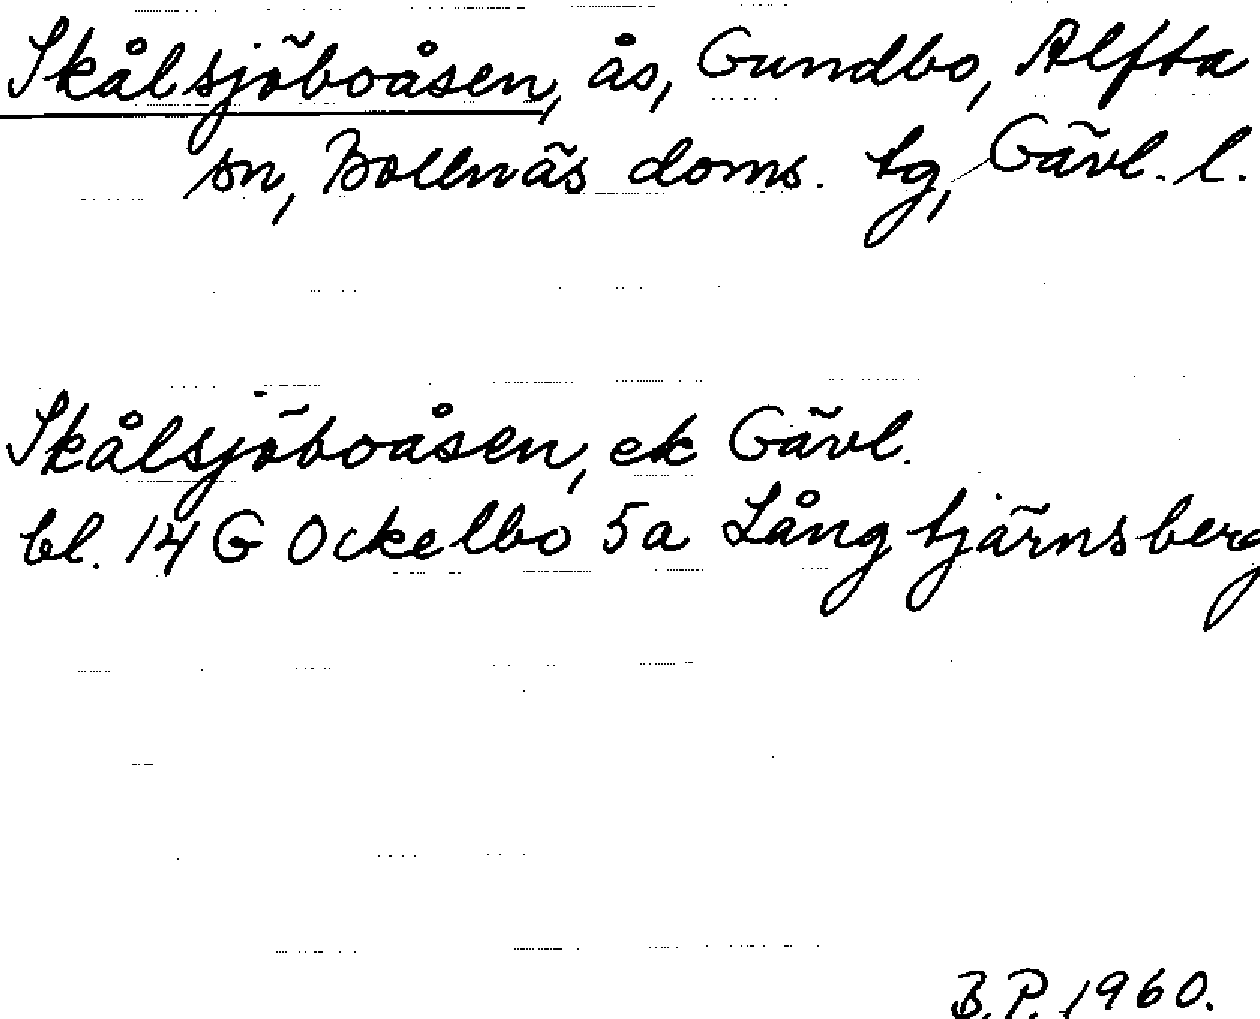 Skålsjöboåsen, ås, Gundbo, Alfta
sn, Bollnäs doms. tg, Gävl. l.
Skålsjöboåsen, ek Gävl.
bl. 14 G Ockelbo 5a Långtjärnsberg
B.P. 1960.